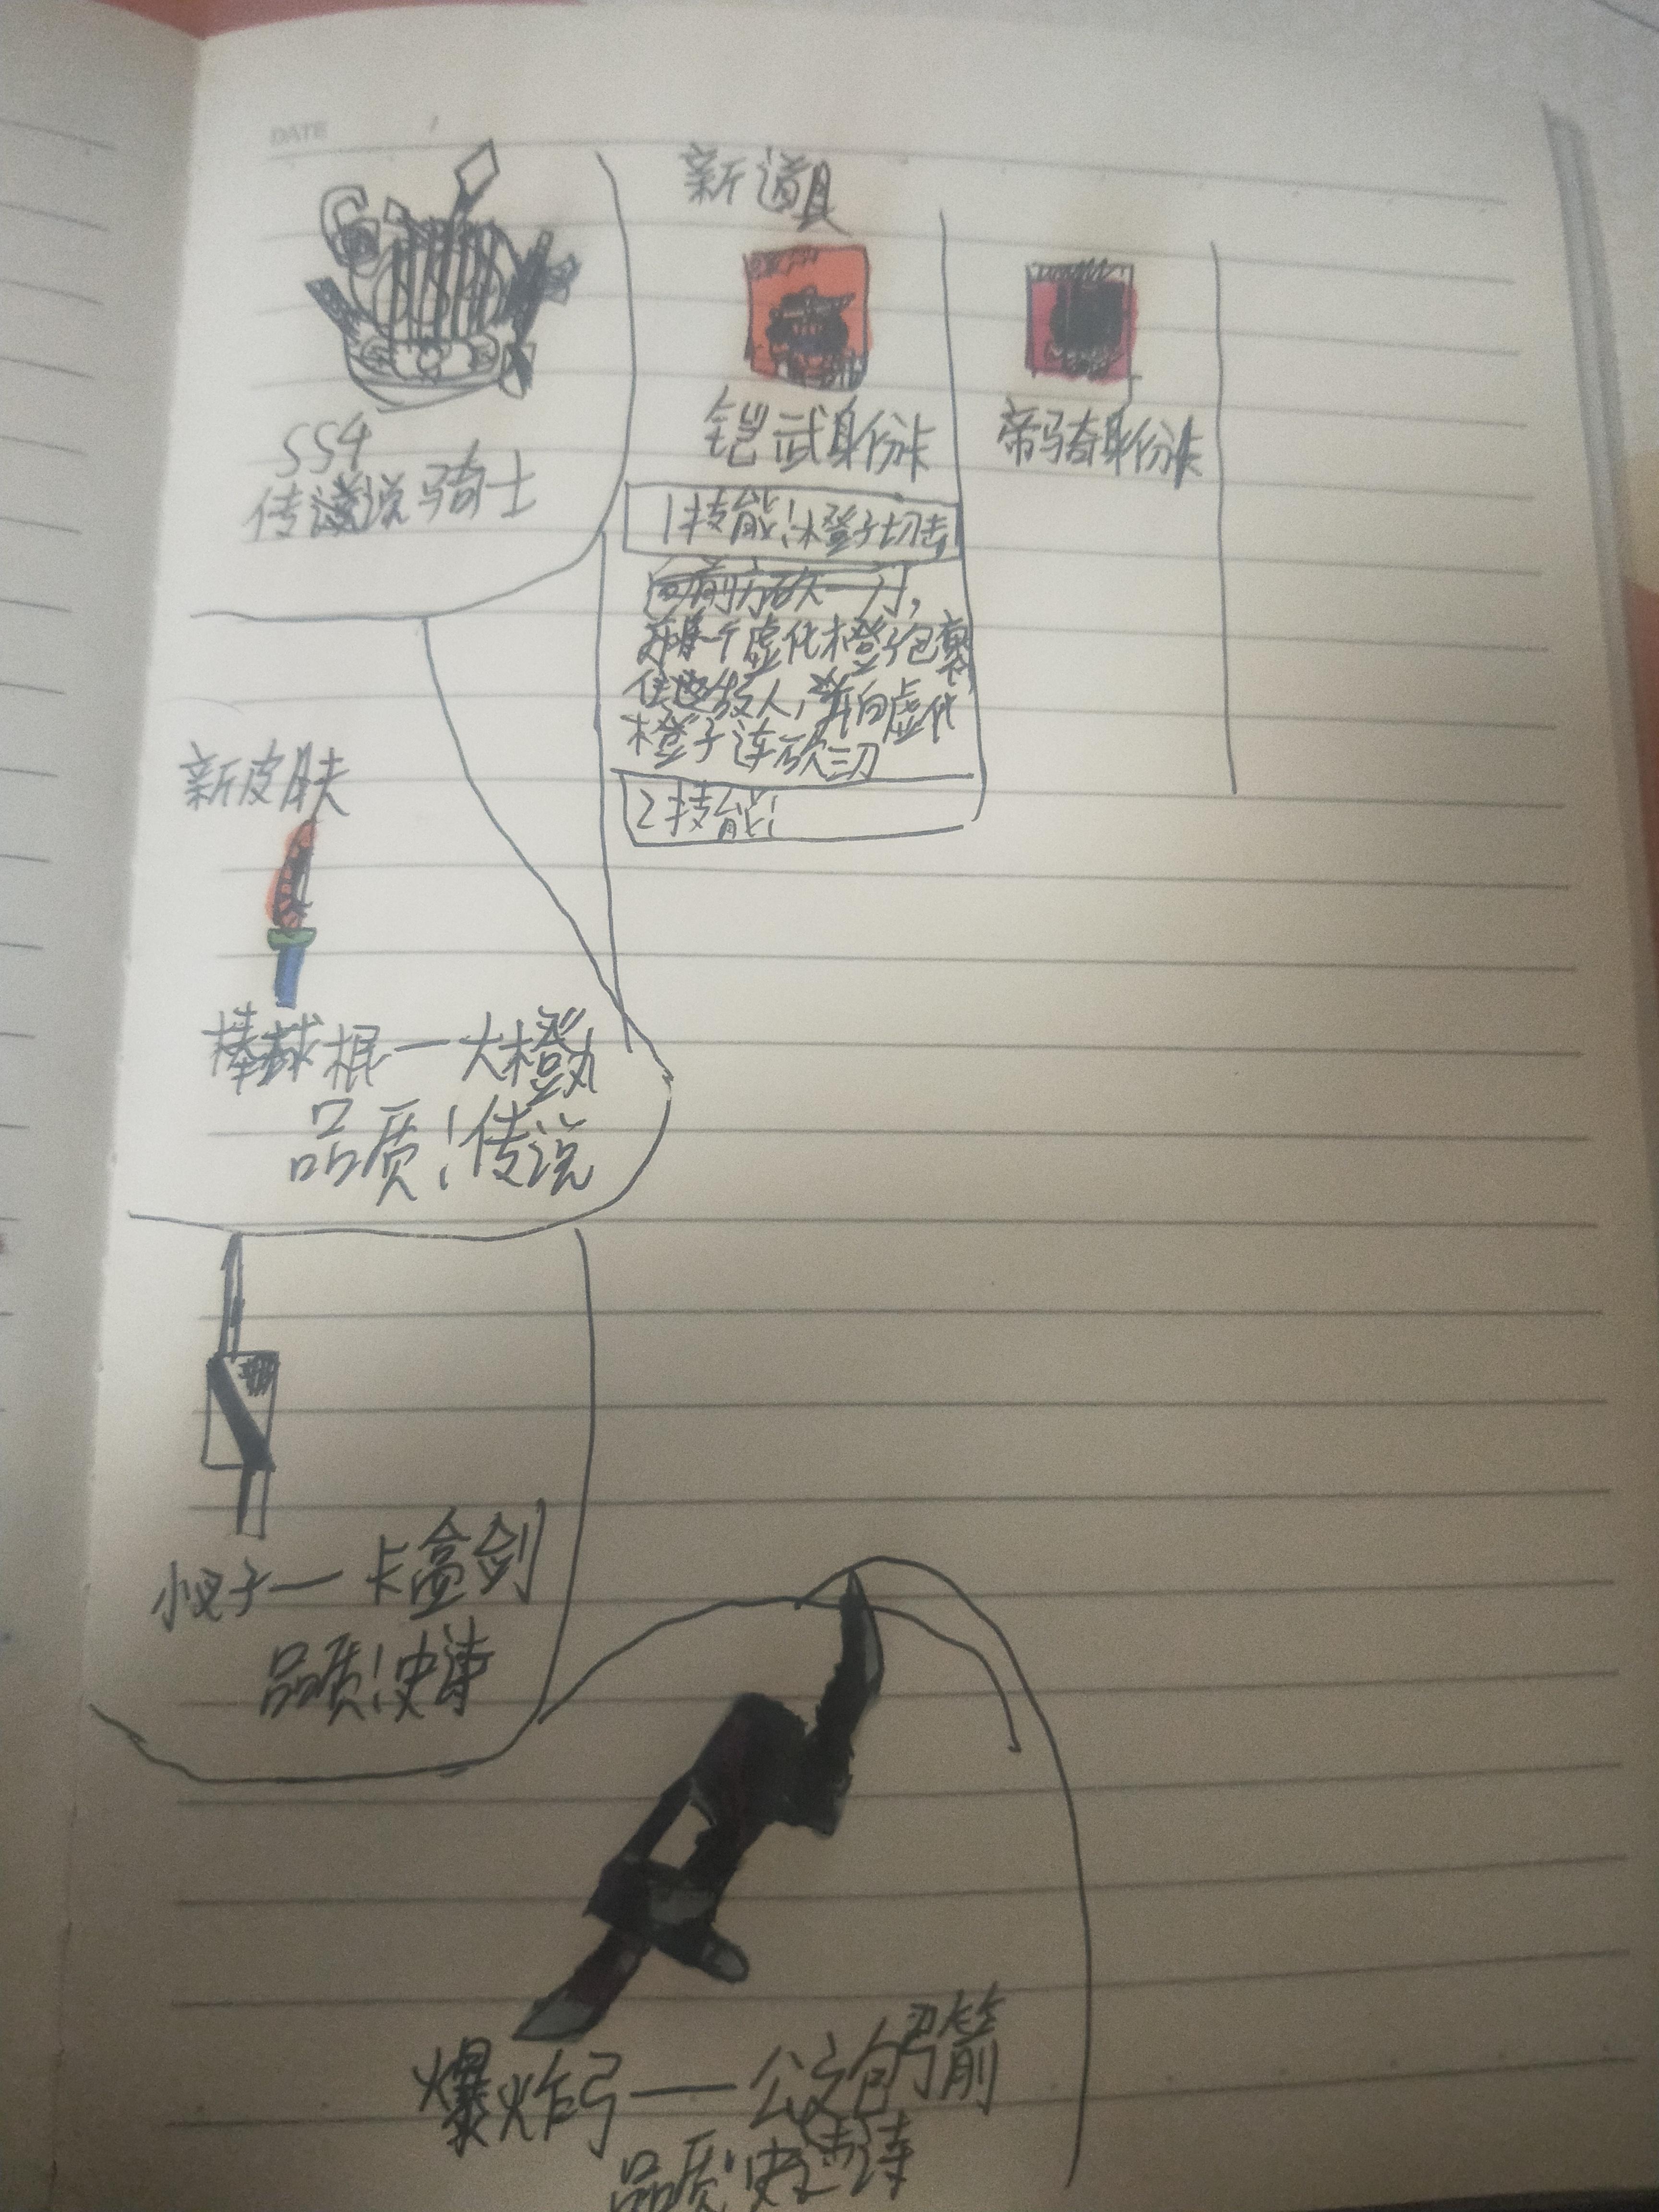 DATE
SS4
传说骑士
新道具
铠武身份卡
1技能:橙子切击
向前方砍一刀,
个虚化橙子包裹
住敌人,并向虚化
橙子连砍三刀
2技能:
帝骑身份卡
新皮肤
棒球棍一大橙丸
品质:传说
小叉子一卡盒剑
品质:史诗
爆炸弓——公文包弓箭
品质:史诗